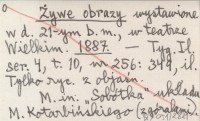 Żywe obrazy wystawione
w d. 21-ym b. m., w teatrze
Wielkim. 1887. — Tyg. Il.
ser. 4, t. 10, nr 256: 349, il.
Tylko ryc. z objaśn.
M. in. „Sobótka" układu
M. Kotarbińskiego (z góralami).